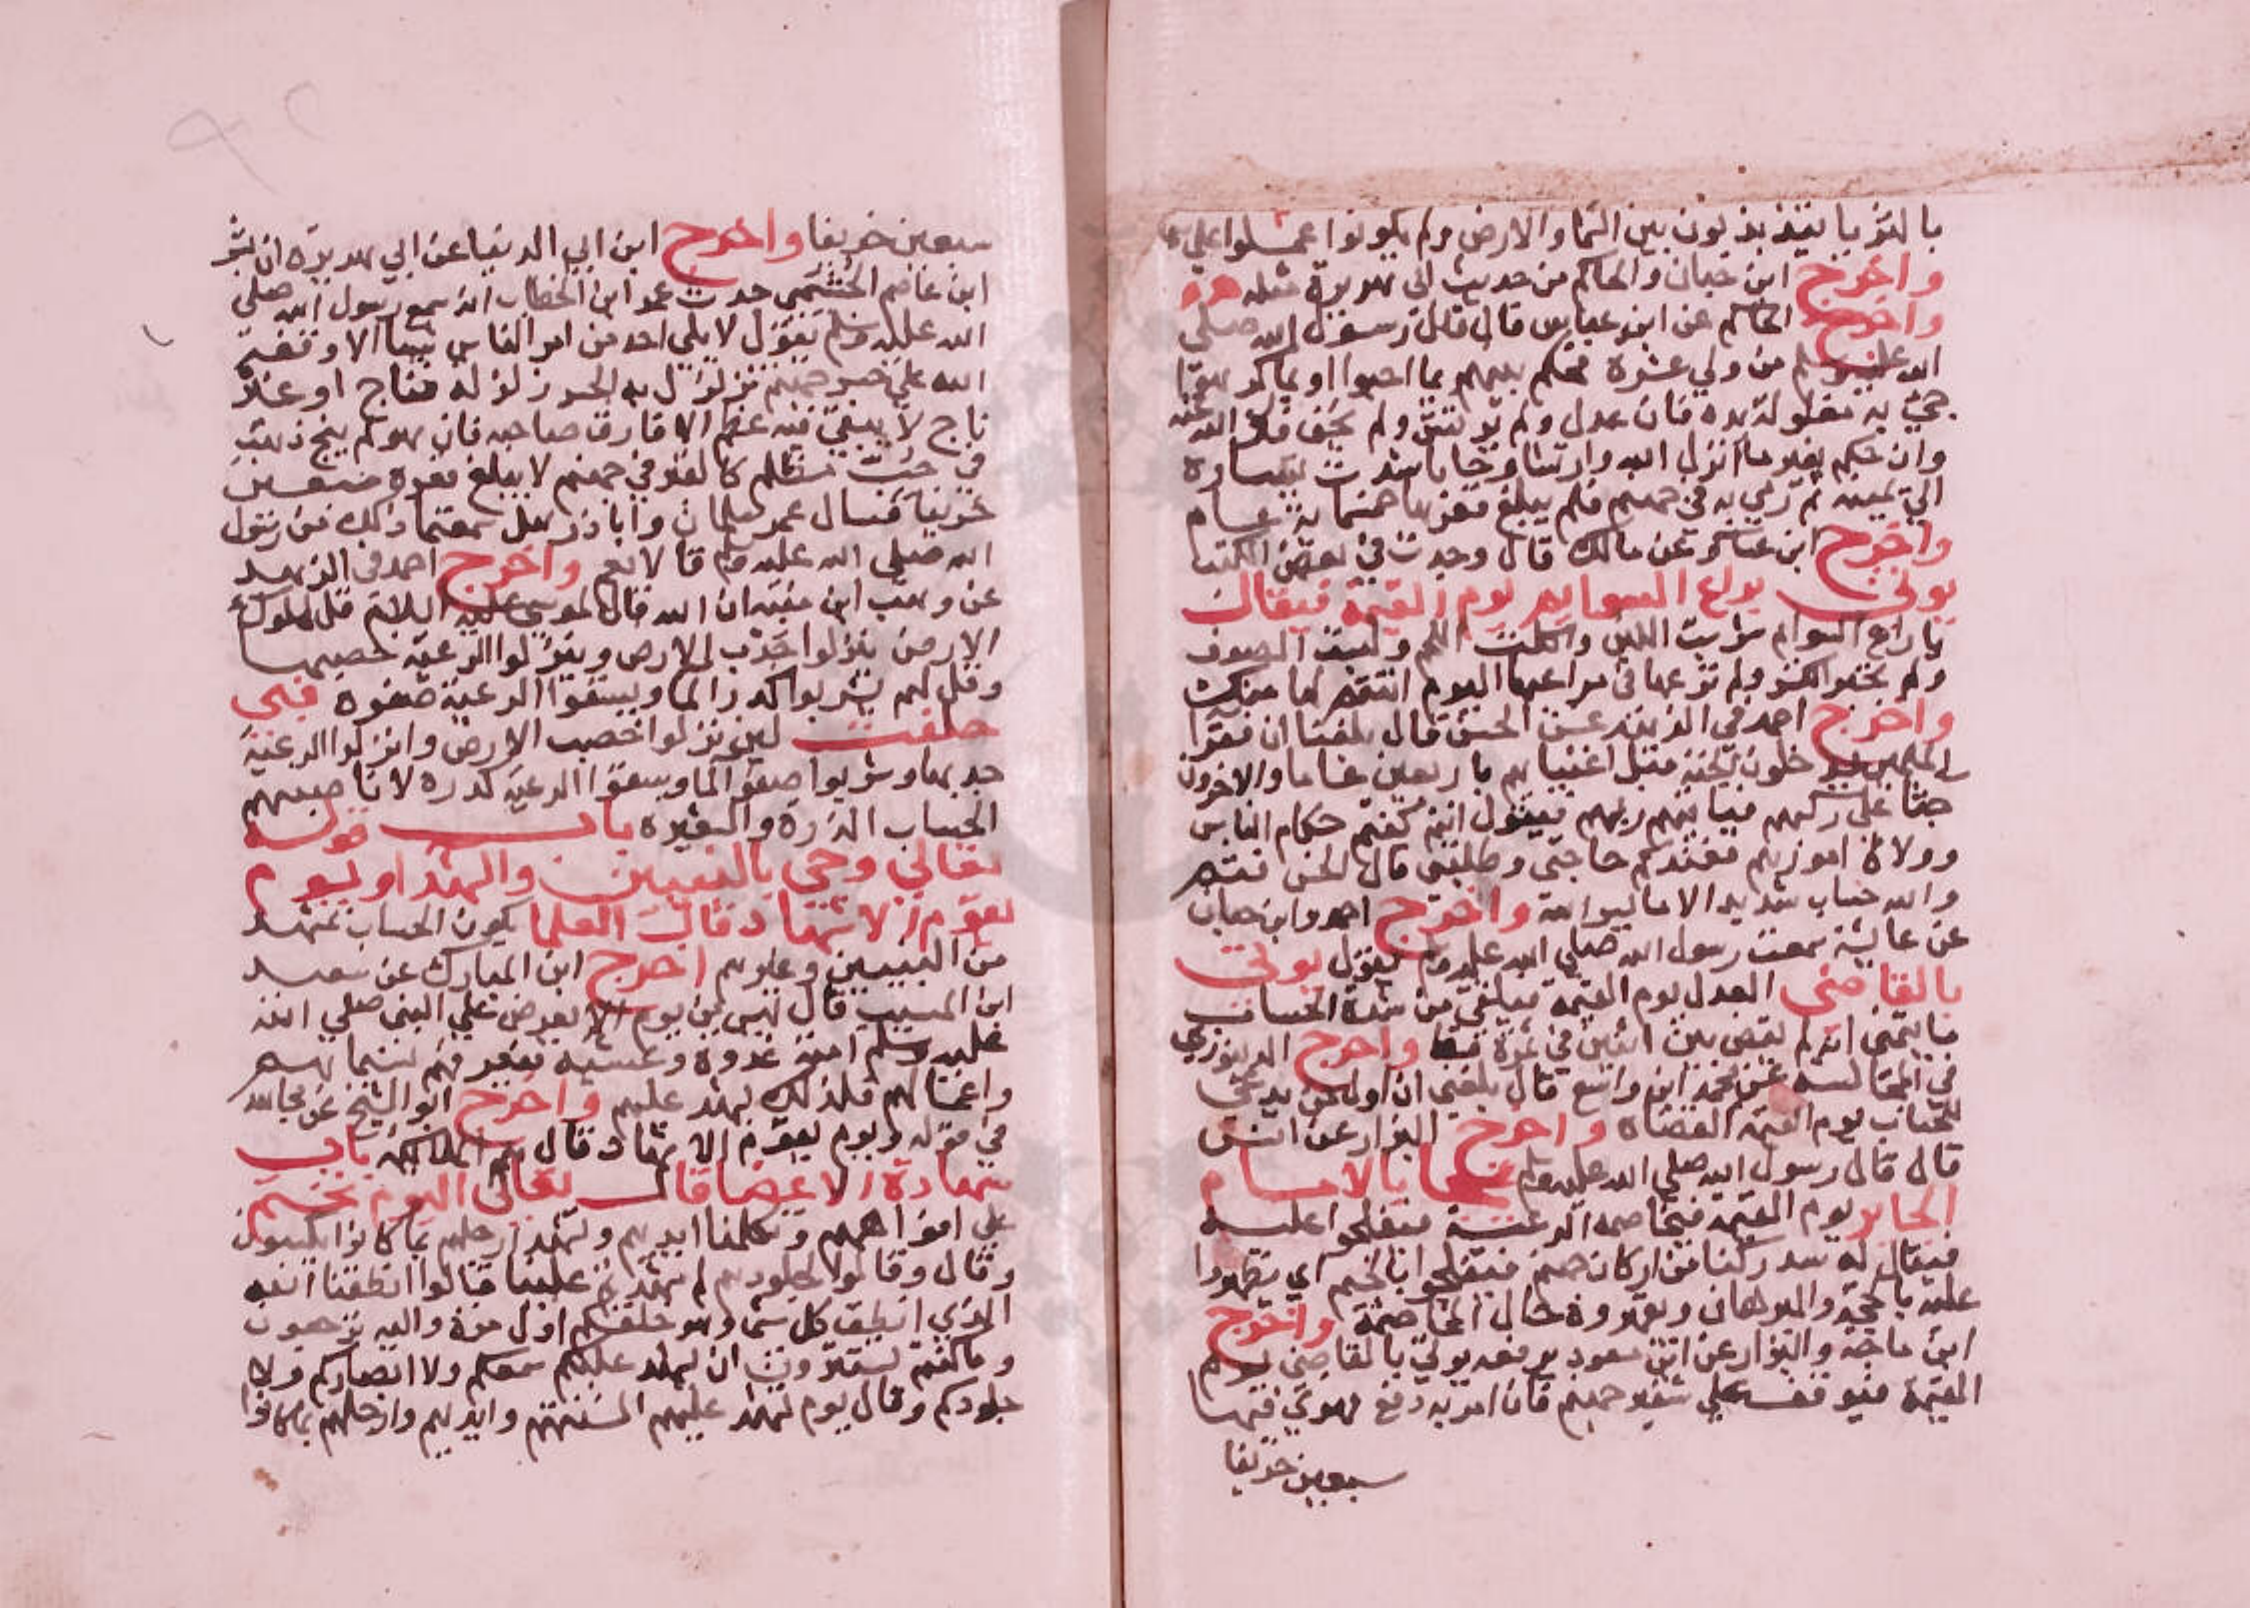 بالثريا يتذبذبون بين السما والارض ولم يكونوا عملوا على
واخرج ابن حبان والحاكم من حديث ابي هريرة مثله
واخرج الحاكم عن ابن عباس قال قال رسول الله صلى
الله عليه وسلم من ولي عشرة فحكم بينهم بما احبوا او بما كرهوا
جيء به مغلولة يده فان عدل ولم يرتش ولم يحف فك الله عنه
وان حكم بغير ما انزل الله وارتشا وحابا شدت يساره
الي يمينه ثم رمي به في جهنم فلم يبلغ قعرها خمسماية عام
واخرج ابن عساكر عن مالك قال وجدت في بعض الكتب
يوتي براع السوايم يوم القيمة فيقال
يا راع السوام شربت اللبن واكلت اللحم ولبست الصوف
ولم تجبر الكسر ولم ترعها في مراعيها اليوم انتقم لها منك
واخرج احمد في الزهد عن الحسن قال بلغنا ان فقرا
المسلمين يدخلون الجنة قبل اغنيايهم باربعين عاما والاخرون
جثا على ركبهم فياتيهم ربهم فيقول انتم كنتم حكام الناس
وولاة امورهم فعندكم حاجتي وطلبتي قال الحسن فثم
والله حساب شديد الا ما يسر الله واخرج احمد وابن حبان
عن عايشة سمعت رسول الله صلي الله عليه وسلم يقول يوتي
بالقاضي العدل يوم القيمة فيلقي من شدة الحساب
ما يتمني انه لم يقض بين اثنين في تمرة قط واخرج الدينوري
في المجالسة عن محمد ابن واسع قال بلغني ان اول من يدعى
للحساب يوم القيمة القضاة واخرج البزار عن انس
قال قال رسول الله صلي الله عليه وسلم يجا بالامام
الجاير يوم القيمة فتخاصمه الرعية فيفلجوا عليه
فيقال له سد ركنا من اركان جهنم فيفلجوا بالجيم اي يظهروا
عليه بالحجة والبرهان ويقهروه حال المخاصمة واخرج
ابن ماجه والبزار عن ابن مسعود يرفعه يوتي بالقاضي يوم
القيمة فيوقف علي شفير جهنم فان امر به دفع فهوي فيها
سبعين خريفا
سبعين خريفا واخرج ابن ابي الدنيا عن ابي هريرة ان بشر
ابن عاصم الجشمي حدث عمر ابن الخطاب انه سمع رسول الله صلي
الله عليه وسلم يقول لا يلي احد من امر الناس شيا الا وقفه
الله علي جسر جهنم فزلزل به الجسر زلزلة فناج او غير
ناج لا يبقي منه عظم الا فارق صاحبه فان هو لم ينج ذهب به
في جب مظلم كالقبر في جهنم لا يبلغ قعره سبعين
خريفا فسال عمر سلمان وابا ذر هل سمعتما ذلك من رسول
الله صلي الله عليه وسلم قالا نعم واخرج احمد في الزهد
عن وهب ابن منبه ان الله قال لموسي عليه السلام قل لملوك
الارض ينزلوا جدب الارض وينزلوا الرعية خصبها
وقل لهم يشربوا كدر الما ويسقوا الرعية صفوه فبي
حلفت لين نزلوا خصب الارض وانزلوا الرعية
جدبها وشربوا صفو الما وسقوا الرعية كدره لاناصبنهم
الحساب الذرة والشعيره باب قوله
تعالي وجي بالنبيين والشهدا ويوم
يقوم الاشهاد قال العلما يكون الحساب بمشهد
من النبيين وغيرهم اخرج ابن المبارك عن سعيد
ابن المسيب قال ليس من يوم الا يعرض علي النبي صلي الله
عليه وسلم امته غدوة وعشية فيعرفهم بسيماهم
واعمالهم فلذلك يشهد عليهم واخرج ابو الشيخ عن مجاهد
في قوله ويوم يقوم الاشهاد قال هم الملايكة باب
شهادة الاعضا قال تعالي اليوم نختم
علي افواههم وتكلمنا ايديهم وتشهد ارجلهم بما كانوا يكسبون
وقال وقالوا لجلودهم لم شهدتم علينا قالوا انطقنا الله
الذي انطق كل شي وهو خلقكم اول مرة واليه ترجعون
وما كنتم تستترون ان يشهد عليكم سمعكم ولا ابصاركم ولا
جلودكم وقال يوم تشهد عليهم السنتهم وايديهم وارجلهم بما كانوا